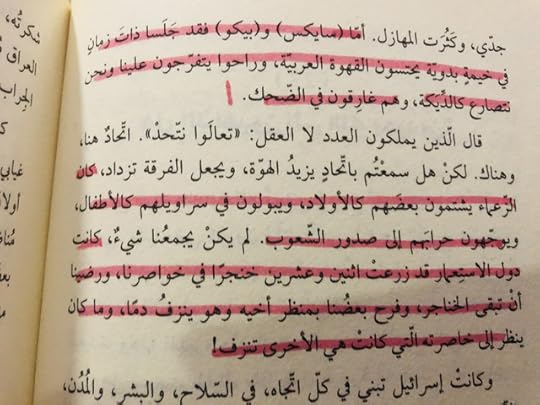 جدّي، وكَثُرَت المهازل. أمّا (سايكس) و(بيكو) فقد جَلَسا ذاتَ زمانٍ
في خيمةٍ بدويّة يحتسون القهوة العربيّة، وراحوا يتفرّجون علينا ونحن
نتصارع كالدِّيَكة، وهم غارقون في الضّحك.
قال الّذين يملكون العدد لا العقل: «تعالَوا نتّحد». اتّحادٌ هنا،
وهناك. لكنْ هل سمعْتُم باتّحادٍ يزيدُ الهوّة، ويجعل الفرقة تزداد، كان
الزّعماء يشتمون بعضَهم كالأولاد، ويبولون في سراويلهم كالأطفال،
ويوجّهون حرابَهم إلى صدور الشّعوب. لم يكنْ يجمعُنا شيءٌ، كانت
دول الاستعمار قد زرعتْ اثنين وعشرين خنجرًا في خواصرنا، ورضينا
أنْ تبقى الخناجر، وفرح بعضُنا بمنظر أخيه وهو ينزفُ دمًا، وما كان
ينظر إلى خاصرته الّتي كانتْ هي الأخرى تنزف!
وكانتْ إسرائيل تبني في كلّ اتّجاه، في السّلاح، والبشر، والمُدُن،
شكرتُه،
العراق
الجراب
غيابي
أولاد